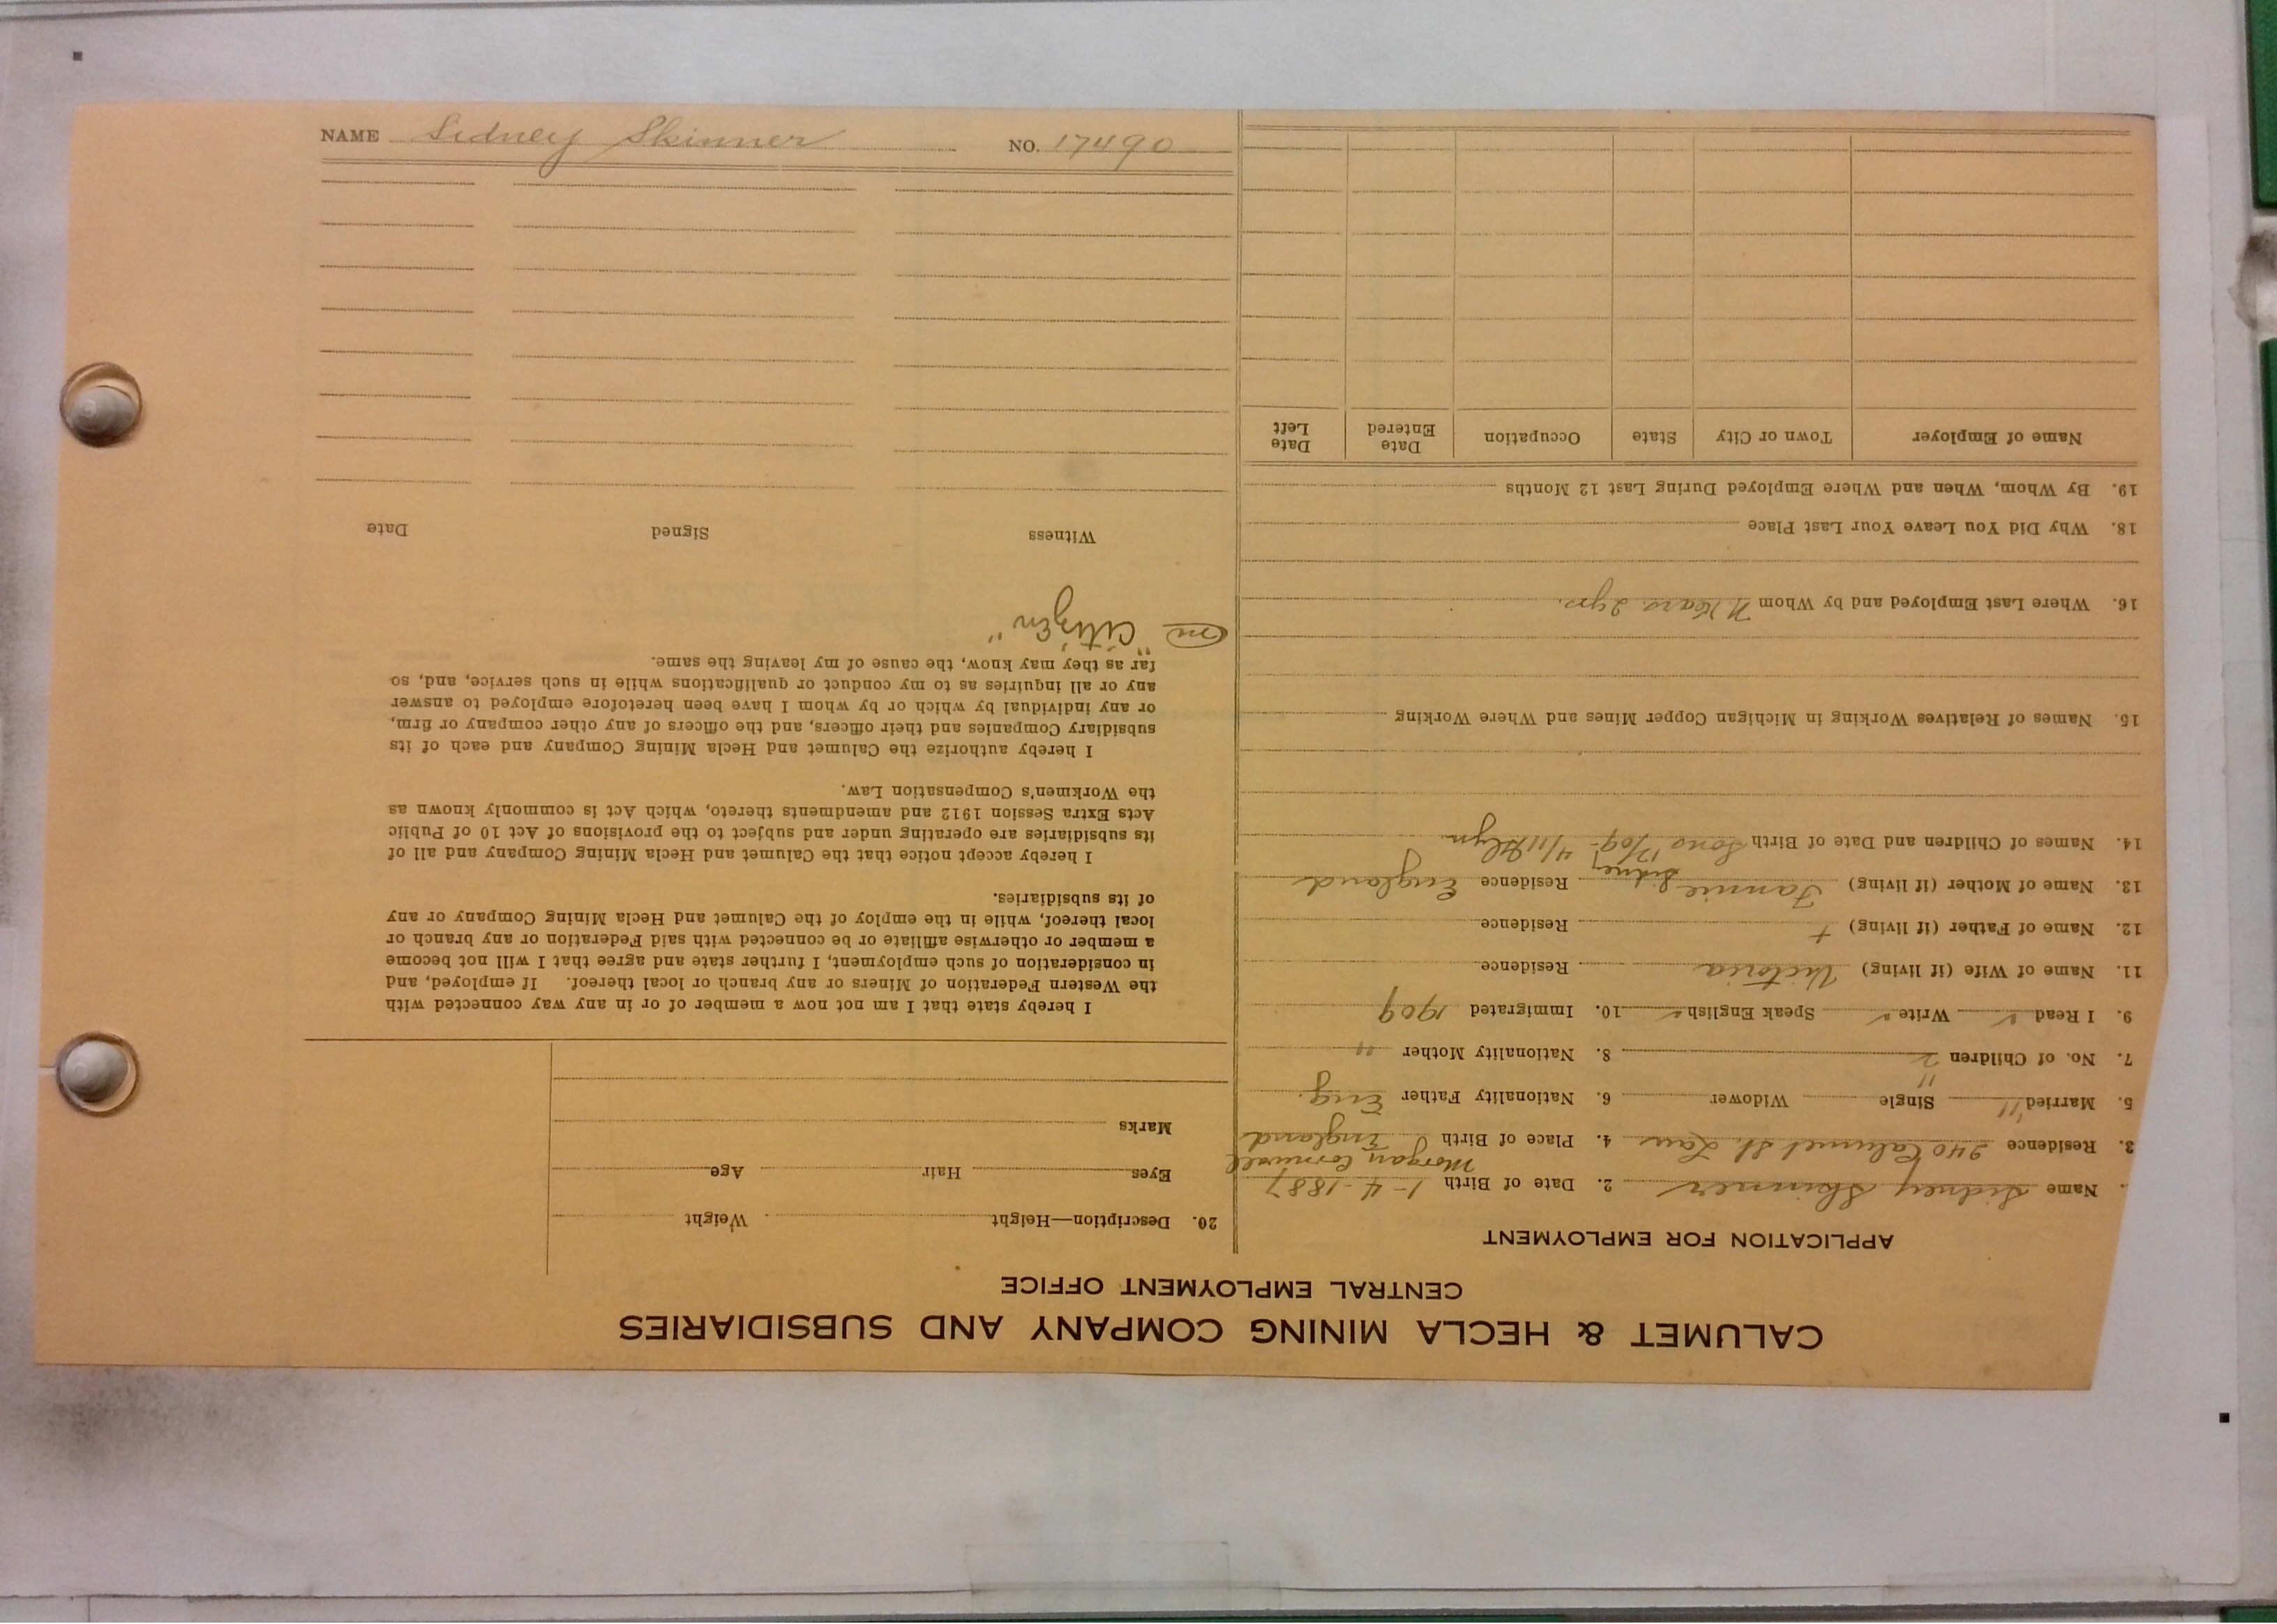 CALUMET & HECLA MINING COMPANY AND SUBSIDIARIES
CENTRAL EMPLOYMENT OFFICE
APPLICATION FOR EMPLOYMENT
Name Sidney Skinner 2. Date of Birth 1-4-1887
Morgan Cornwall
3. Residence 240 Calumet St. Lau 4. Place of Birth England
5. Married " Single Widower 6. Nationality Father Eng.
7. No. of Children 2 8. Nationality Mother "
9. I Read ✓ Write ✓ Speak English ✓ 10. Immigrated 1909
11. Name of Wife (if living) Victoria Residence
12. Name of Father (if living) + Residence
13. Name of Mother (if living) Fannie Residence England
Sidney
14. Names of Children and Date of Birth
15. Names of Relatives Working in Michigan Copper Mines and Where Working
16. Where Last Employed and by Whom N Kears. 2 yrs.
18. Why Did You Leave Your Last Place
19. By Whom, When and Where Employed During Last 12 Months
Name of Employer Town or City State Occupation Date Entered Date Left
20. Description—Height Weight
Eyes Hair Age
Marks
I hereby state that I am not now a member of or in any way connected with
the Western Federation of Miners or any branch or local thereof. If employed, and
in consideration of such employment, I further state and agree that I will not become
a member or otherwise affiliate or be connected with said Federation or any branch or
local thereof, while in the employ of the Calumet and Hecla Mining Company or any
of its subsidiaries.
I hereby accept notice that the Calumet and Hecla Mining Company and all of
its subsidiaries are operating under and subject to the provisions of Act 10 of Public
Acts Extra Session 1912 and amendments thereto, which Act is commonly known as
the Workmen's Compensation Law.
I hereby authorize the Calumet and Hecla Mining Company and each of its
subsidiary Companies and their officers, and the officers of any other company or firm,
or any individual by which or by whom I have been heretofore employed to answer
any or all inquiries as to my conduct or qualifications while in such service, and, so
far as they may know, the cause of my leaving the same.
"Citizen"
Witness Signed Date
NAME Sidney Skinner NO. 17490